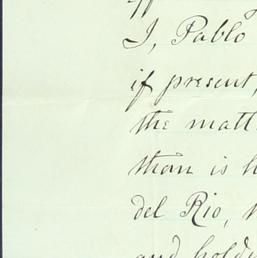 I, Pablo
if present,
the matt
than is h
del Rio,
and holdi